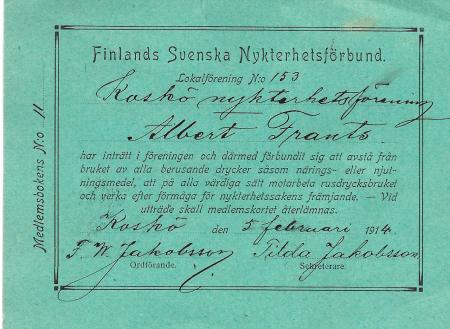 Finlands Svenska Nykterhetsförbund.
Lokalförening N:o 153
Koskö nykterhetsförening
Albert Frants
har inträtt i föreningen och därmed förbundit sig att avstå från
bruket av alla berusande drycker såsom närings- eller njut-
ningsmedel, att på alla värdiga sätt motarbeta rusdrycksbruket
och verka efter förmåga för nykterhetssakens främjande. — Vid
utträde skall medlemskortet återlämnas.
Koskö den 5 februari 1914
F. W. Jakobsson Tilda Jakobsson
Ordförande. Sekreterare.
Medlemsbokens N:o 11